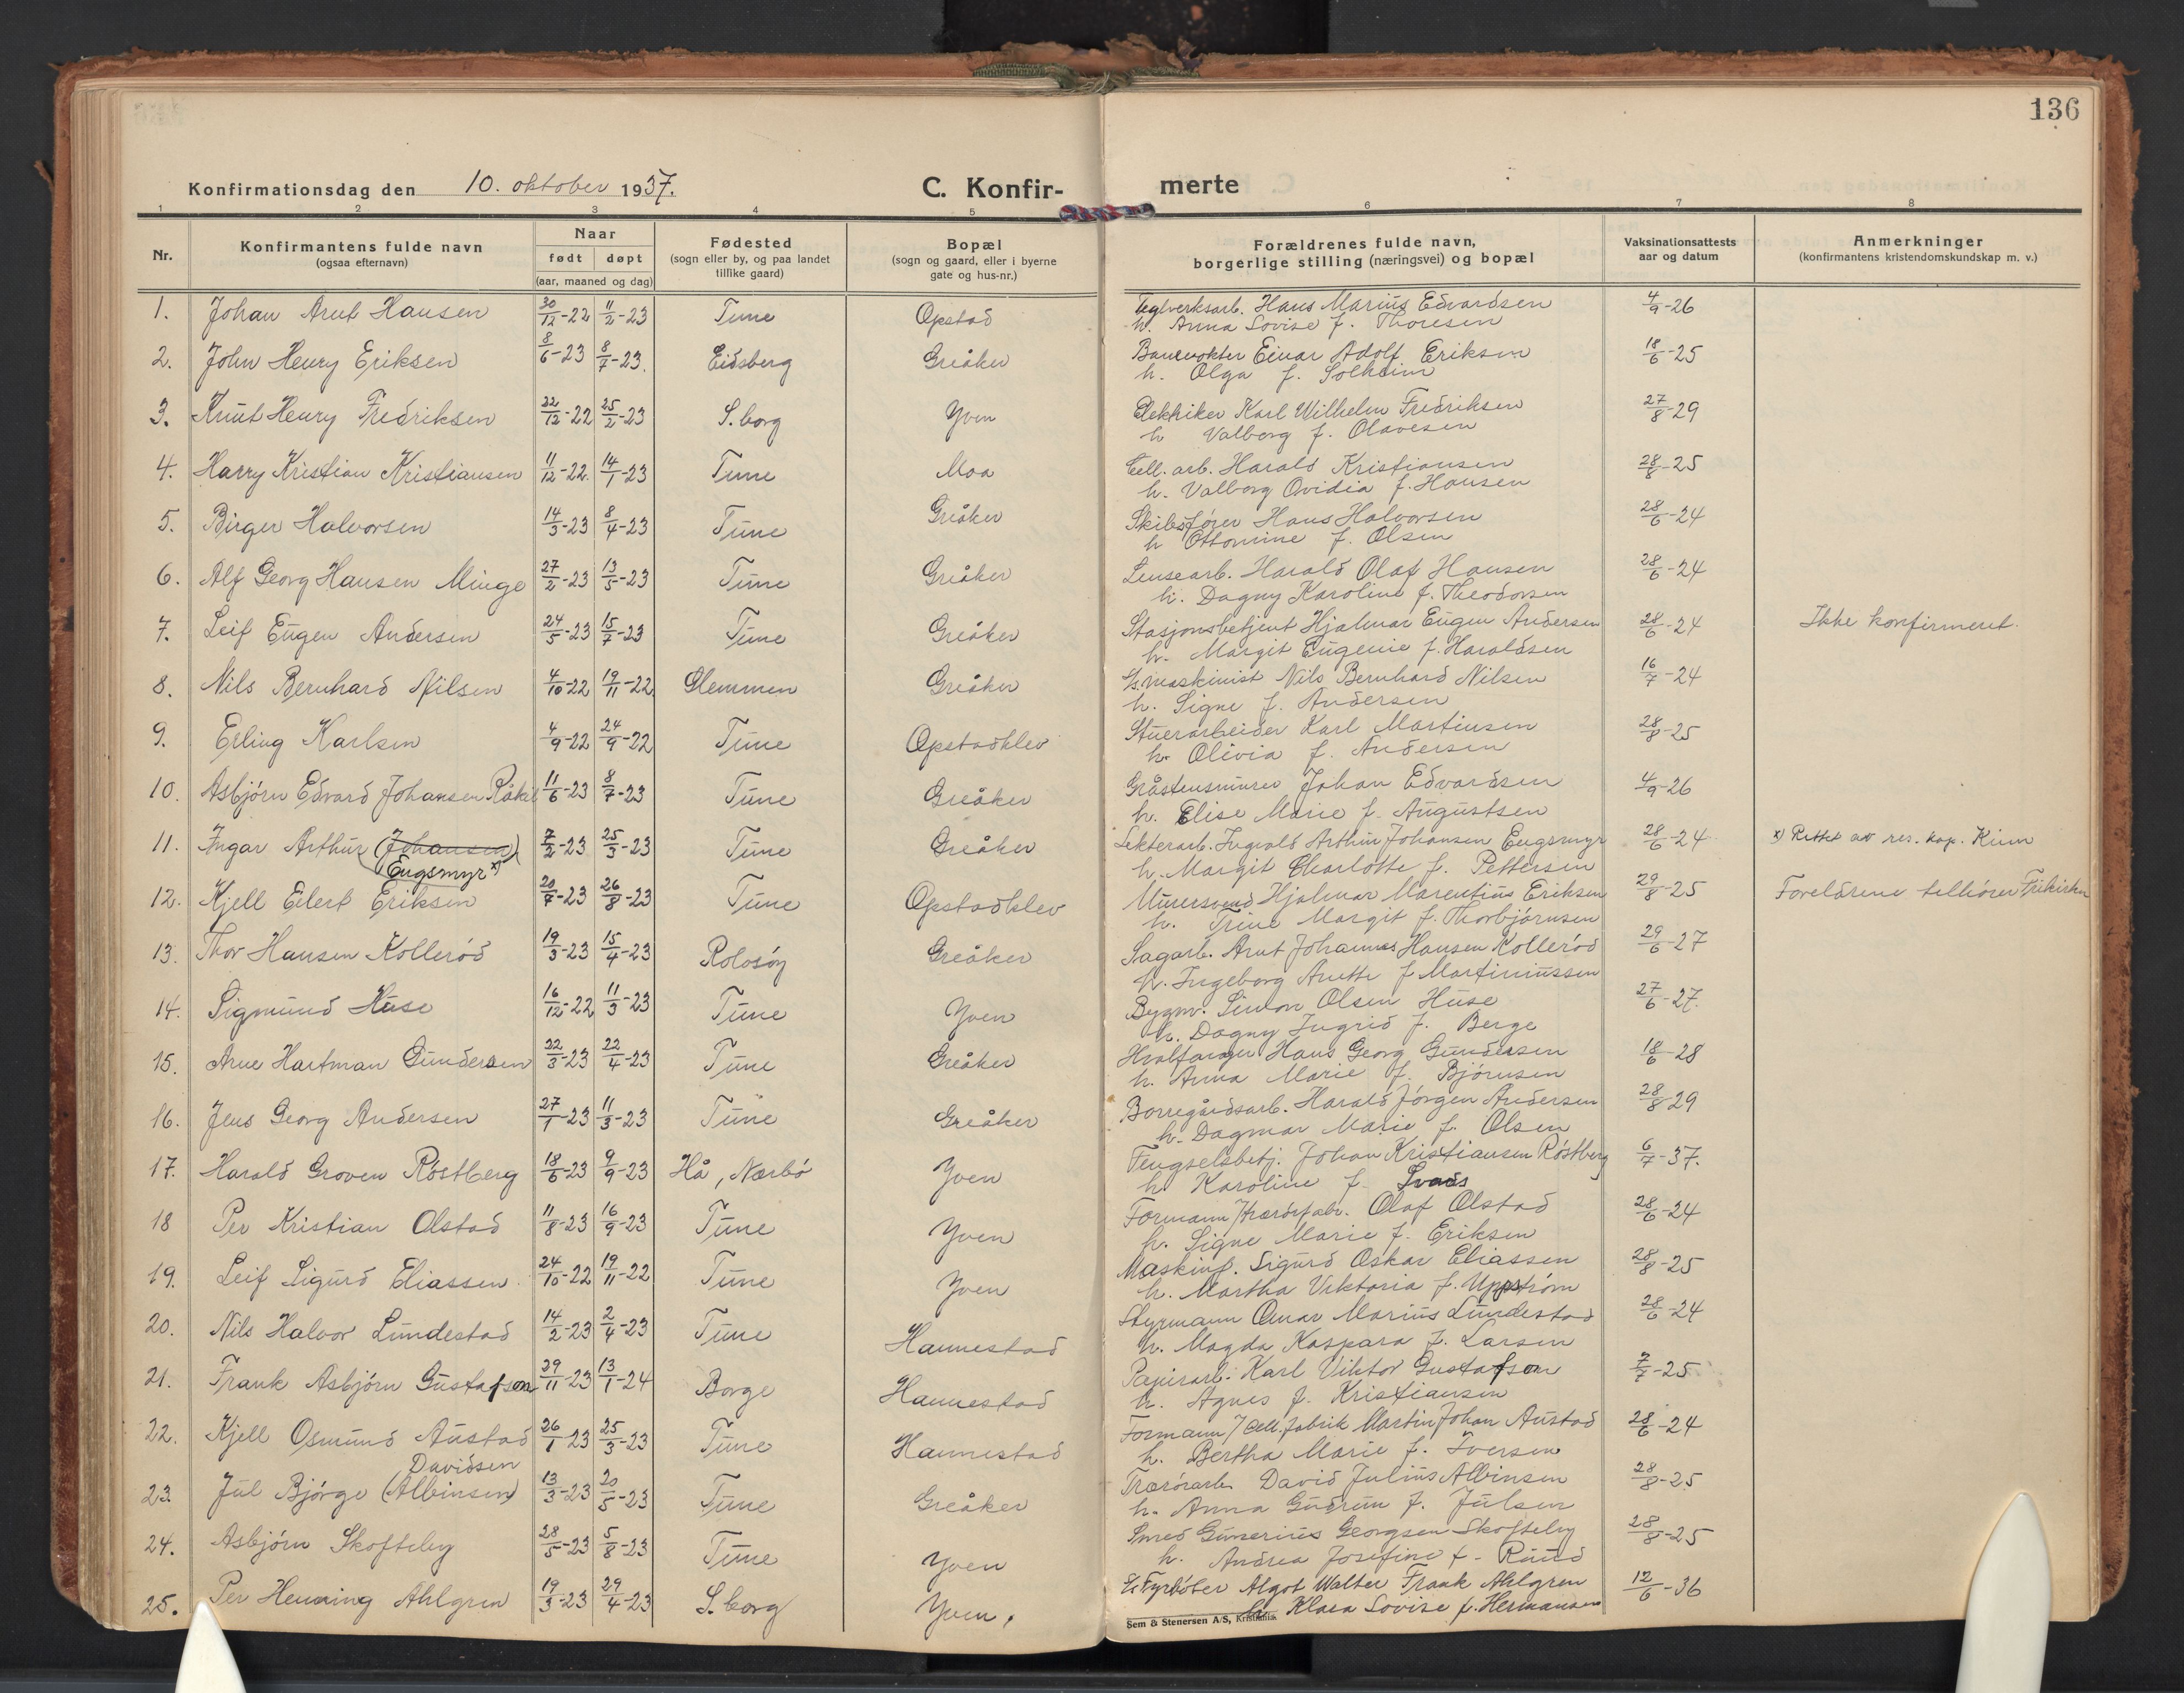 136
Konfirmationsdag den 10. oktober 1937.
C. Konfir-
merte
1 2 3 4 5 6 7 8
Nr.
Konfirmantens fulde navn
(ogsaa efternavn)
Naar
født døpt
(aar, maaned og dag)
Fødested
(sogn eller by, og paa landet
tillike gaard)
Bopæl
(sogn og gaard, eller i byerne
gate og hus-nr.)
Forældrenes fulde navn,
borgerlige stilling (næringsvei) og bopæl
Vaksinationsattests
aar og datum
Anmerkninger
(konfirmantens kristendomskundskap m. v.)
1. Johan Arnt Hansen 30/12-22 11/2-23 Tune Opstad Teglverksarb. Hans Marius Edvardsen 4/9-26
h. Anna Lovise f. Thoresen
2. John Henry Eriksen 8/6-23 8/7-23. Eidsberg Greåker Banevokter Einar Adolf Eriksen 18/6-25
h. Olga f. Solheim
3. Knut Henry Fredriksen 22/12-22 25/2-23 S.borg Yven Elektriker Karl Wilhelm Fredriksen 27/8-29
h Valborg f. Olavesen
4. Harry Kristian Kristiansen 11/12-22. 14/1-23 Tune Moa Cell. arb. Harald Kristiansen 28/8-25
h. Valborg Ovidia f. Hansen
5. Birger Halvorsen 14/3-23 8/4-23 Tune Greåker Skibsfører Hans Halvorsen 28/6-24
h Ottomine f. Olsen
6. Alf Georg Hansen Minge 27/2-23 13/5-23 Tune Greåker Lensearb. Harald Olaf Hansen 28/6-24
h. Dagny Karoline f. Theodorsen
7. Leif Eugen Andersen 24/5-23 15/7-23 Tune Greåker Stasjonsbetjent Hjalmar Eugen Andersen 28/6-24 Ikke konfirmeret.
h. Margit Eugenie f. Haraldsen
8. Nils Bernhard Nilsen 4/10-22 19/11-22 Glemmen Greåker maskinist Nils Bernhard Nilsen 16/7-24
h. Signe f. Andersen
9. Erling Karlsen 4/9-22 24/9-22 Tune Opstadklev Stuerarbeider Karl Martinsen 28/8-25
h. Olivia f. Andersen
10. Asbjørn Edvard Johansen Råkil 11/6-23 8/7-23 Tune Greåker Gråstensmurer Johan Edvardsen 4/9-26
h. Elise Marie f. Augustsen
11. Ingar Arthur (Johansen) 7/2-23 25/3-23 Tune Greåker Lekterarb. Ingvald Arthur Johansen Engsmyr 28/6-24 x) Rettet av res. kap. Kium
Engsmyr x)
h. Margit Charlotte f. Pettersen
12. Kjell Eilert Eriksen 20/7-23 26/8-23 Tune Opstadklev Murersvend Hjalmar Marentius Eriksen 29/8-25 Foreldrene tilhører Frikirken
h. Trine Margit f. Thorbjørnsen
13. Thor Hansen Kollerød 19/3-23 15/4-23 Rolvsøy Greåker Sagarb. Arnt Johannes Hansen Kollerød 29/6-27
h. Ingeborg Anette f. Martiniussen
14. Sigmund Huse 16/12-22 11/3-23 Tune Yven Bygm. Simon Olsen Huse 27/6-27.
h. Dagny Ingrid f. Berge
15. Arne Hartman Gundersen 22/3-23 22/4-23 Tune Greåker Hvalfanger Hans Georg Gundersen 18/6-28
h. Anna Marie f. Bjørnsen
16. Jens Georg Andersen 27/1-23 11/3-23 Tune Greåker Borregårdsarb. Harald Jørgen Andersen 28/8-29
h. Dagmar Marie f. Olsen
17. Harald Groven Röstberg 18/6-23 9/9-23 Hå, Nærbø Yven Fengselsbetj. Johan Kristiansen Röstberg 6/7-37.
h. Karoline f.
18 Per Kristian Olstad 11/8-23 16/9-23 Tune Yven Formann Olaf Olstad 28/6-24
h. Signe Marie f. Eriksen
19. Leif Sigurd Eliassen. 24/10-22 19/11-22 Tune Yven Maskinf. Sigurd Oskar Eliassen 28/8-25
h. Martha Viktoria f. Uppström
20. Nils Halvor Lundestad 14/2-23 2/4-23 Tune Hannestad Styrmann Marius Lundestad 28/6-24
h. Magda Kaspara f. Larsen
21. Frank Asbjørn Gustafson 29/11-23 13/1-24 Borge Hannestad Papirarb. Karl Viktor Gustafson 7/7-25
h. Agnes f. Kristiansen
22. Kjell Osmund Austad 26/1-23 25/3-23 Tune Hannestad Formann / Cell. fabrik Martin Johan Austad 28/6-24
h. Bertha Marie f. Iversen
Davidsen
23. Jul Bjørge (Albinsen) 13/3-23 20/5-23 Tune Greåker David Julius Albinsen 28/8-25
h. Anna Gudrun f. Julsen
24. Asbjørn Skofteby 28/5-23 5/8-23 Tune Yven Smed Gunerius Georgsen Skofteby 28/8-25
h. Andrea Josefine f. Ruud
25. Per Henning Ahlgren 19/3-23 29/4-23 S.borg Yven. Fyrbøter Algot Walter Frank Ahlgren 12/6-36
h. Klara Lovise f. Hermansen
Sem & Stenersen A/S, Kristiania.